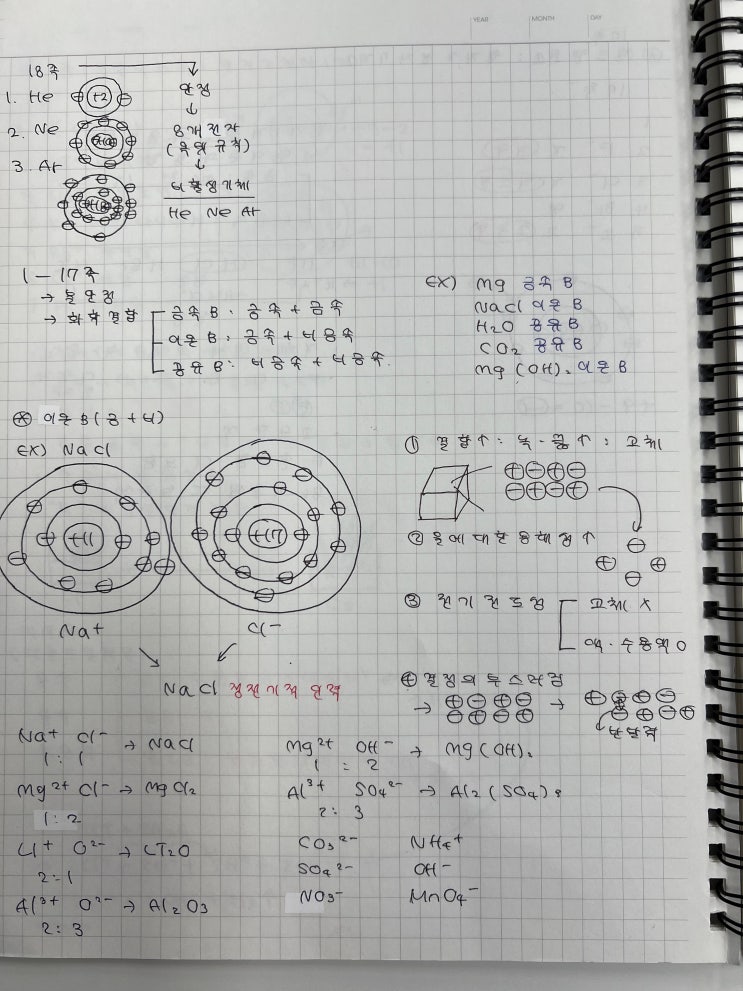 YEAR MONTH DAY
18족
안정
1. He
+2
2. Ne
8개 전자
(옥텟 규칙)
3. Ar
비활성기체
He Ne Ar
1-17족
→ 불안정
→ 화학결합
금속 B. 금속 + 금속
이온 B. 금속 + 비금속
공유 B: 비금속 + 비금속.
ex) Mg 금속 B
NaCl 이온 B
H2O 공유 B
CO2 공유 B
Mg(OH)₂ 이온 B
이온 B (금 + 비)
ex) NaCl
+11
+17
Na+
Cl-
NaCl 정전기적 인력
① 결합↑: 녹·끓↑: 고체
② 물에 대한 용해성↑
③ 전기 전도성
고체 X
액·수용액 O
④ 결정의 부스러짐
반발력
Na+ Cl- → NaCl
1:1
Mg2+ Cl- → MgCl2
1:2
Li+ O2- → Li2O
2:1
Al3+ O2- → Al2O3
2:3
Mg2+ OH- → Mg(OH)₂
1:2
Al3+ SO4 2- → Al2(SO4)3
2:3
CO3 2- NH4+
SO4 2- OH-
NO3- MnO4-